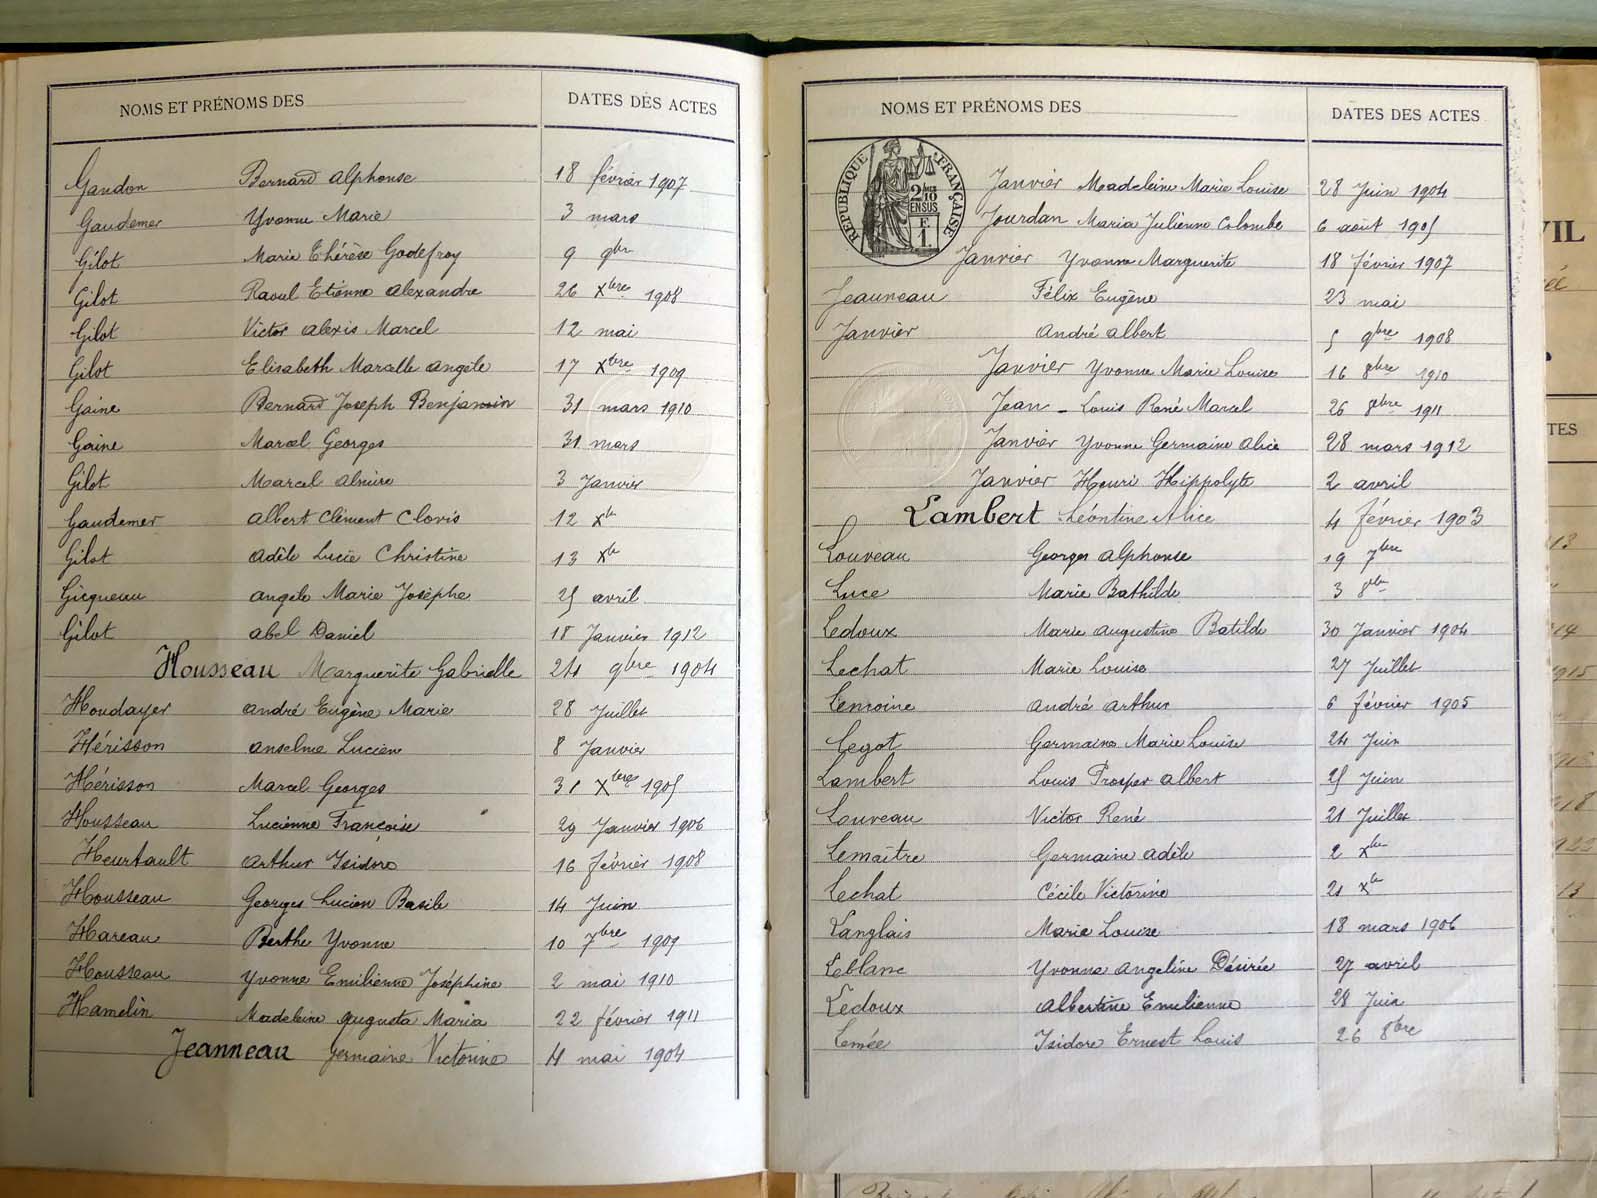 NOMS ET PRÉNOMS DES DATES DES ACTES
Gandon Bernard Alphonse 18 février 1907
Gaudemer Yvonne Marie 3 mars
Gilot Marie Thérèse Godefroy 9 9bre
Gilot Raoul Etienne Alexandre 26 Xbre 1908
Gilot Victor Alexis Marcel 12 mai
Gilot Elisabeth Marcelle Angèle 17 Xbre 1909
Gaine Bernard Joseph Benjamin 31 mars 1910
Gaine Marcel Georges 31 mars
Gilot Marcel Almire 3 Janvier
Gaudemer Albert Clément Clovis 12 Xbre
Gilot Adèle Lucie Christine 13 Xbre
Gicqueau Angèle Marie Josèphe 25 avril
Gilot Abel Daniel 18 Janvier 1912
Housseau Marguerite Gabrielle 24 9bre 1904
Houdayer André Eugène Marie 28 Juillet
Hérisson Anselme Lucien 8 Janvier
Hérisson Marcel Georges 31 Xbre 1905
Housseau Lucienne Françoise 29 Janvier 1906
Heurtault Arthur Isidore 16 février 1908
Housseau Georges Lucien Basile 14 Juin
Hareau Berthe Yvonne 10 7bre 1909
Housseau Yvonne Emilienne Joséphine 2 mai 1910
Hamelin Madeleine Augusta Maria 22 février 1911
Jeanneau Germaine Victorine 4 mai 1904
NOMS ET PRÉNOMS DES DATES DES ACTES
RÉPUBLIQUE FRANÇAISE
2/10
EN SUS
F.
1.
Janvier Madeleine Marie Louise 28 Juin 1904
Jourdan Maria Julienne Colombe 6 août 1905
Janvier Yvonne Marguerite 18 février 1907
Jeauneau Félix Eugène 23 mai
Janvier André Albert 5 9bre 1908
Janvier Yvonne Marie Louise 16 8bre 1910
Jean - Louis René Marcel 26 8bre 1911
Janvier Yvonne Germaine Alice 28 mars 1912
Janvier Henri Hippolyte 2 avril
Lambert Léontine Alice 4 février 1903
Louveau Georges Alphonse 19 7bre
Luce Marie Bathilde 3 8bre
Ledoux Marie Augustine Batilde 30 Janvier 1904
Lechat Marie Louise 27 Juillet
Lemoine André Arthur 6 février 1905
Legot Germaine Marie Louise 24 Juin
Lambert Louis Prosper Albert 25 Juin
Louveau Victor René 21 Juillet
Lemaître Germaine Adèle 2 Xbre
Lechat Cécile Victorine 21 Xbre
Langlais Marie Louise 18 mars 1906
Leblanc Yvonne Angeline Désirée 27 avril
Ledoux Albertine Emilienne 28 Juin
Lemée Isidore Ernest Louis 26 8bre
VIL
TES